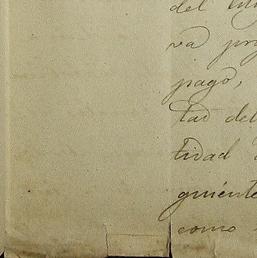 del
va
pago,
tad del
tidad
guiente
como